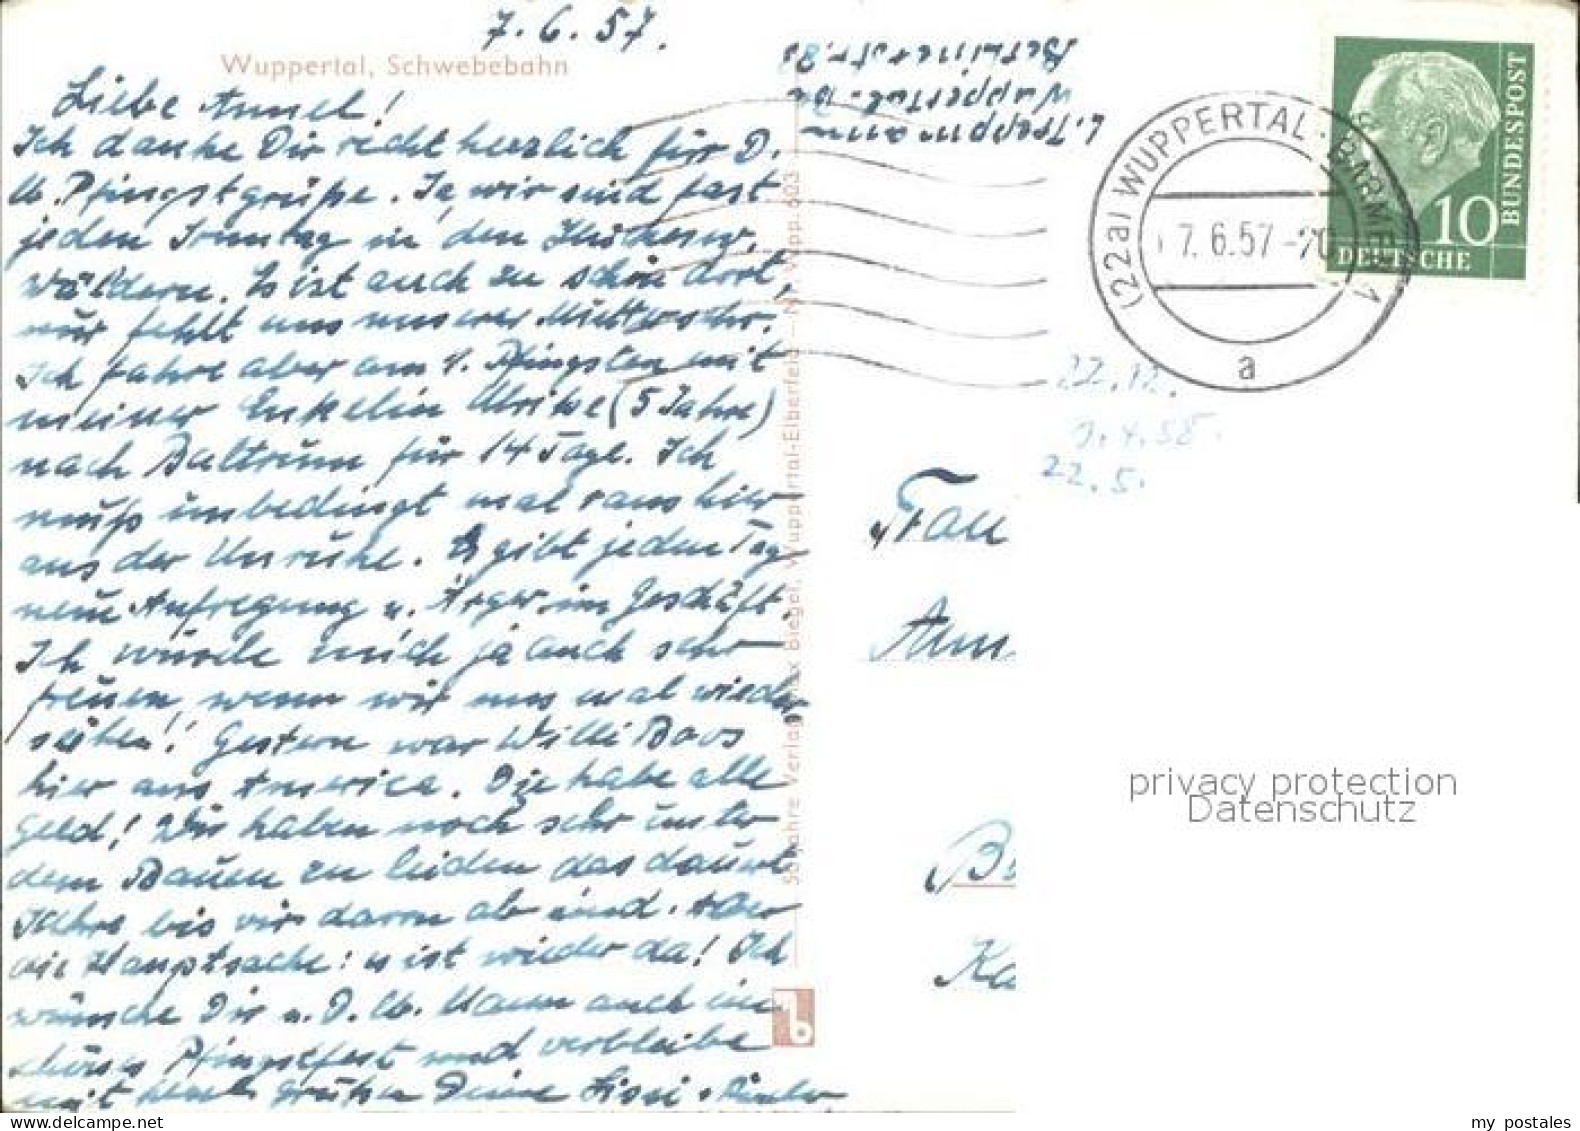 7.6.57.
Wuppertal, Schwebebahn
Liebe Annel!
Ich danke Dir recht herzlich für D.
lb. Pfingstgrüße. Ja, wir sind fast
jeden Sonntag in den
wäldern. Es ist auch zu schön dort,
nur fehlt uns unsere Mutter sehr.
Ich fahre aber am 1. Pfingsten mit
meiner Enkelin Ulrike (5 Jahre)
nach Baltrum für 14 Tage. Ich
muß unbedingt mal raus hier
aus der Unruhe. Es gibt jeden Tag
neue Aufregung u. Ärger im Geschäft.
Ich würde mich ja auch sehr
freuen, wenn wir uns mal wieder
sähen! Gestern war Willi Boos
hier aus America. Die habe alle
Geld! Wir haben noch sehr unter
dem Bauen zu leiden das dauert
Jahre bis wir davon ab sind. Aber
die Hauptsache: es ist wieder da! Ich
wünsche Dir u. D. lb. Mann auch ein
schönes Pfingstfest und verbleibe
mit herzl. Grüßen Deine Lissi u. Kinder
L. Troppmann
Wuppertal-Ba
Berlinerstr.
(22a) WUPPERTAL-BARMEN 1
7.6.57-20
a
10
DEUTSCHE
BUNDESPOST
22.12.
1.4.58.
22.5.
Verlag Max Biegel, Wuppertal-Elberfeld – Nr. Wupp. 603
Frau
Ann
B
Ka
privacy protection
Datenschutz
b
my postales
www.delcampe.net